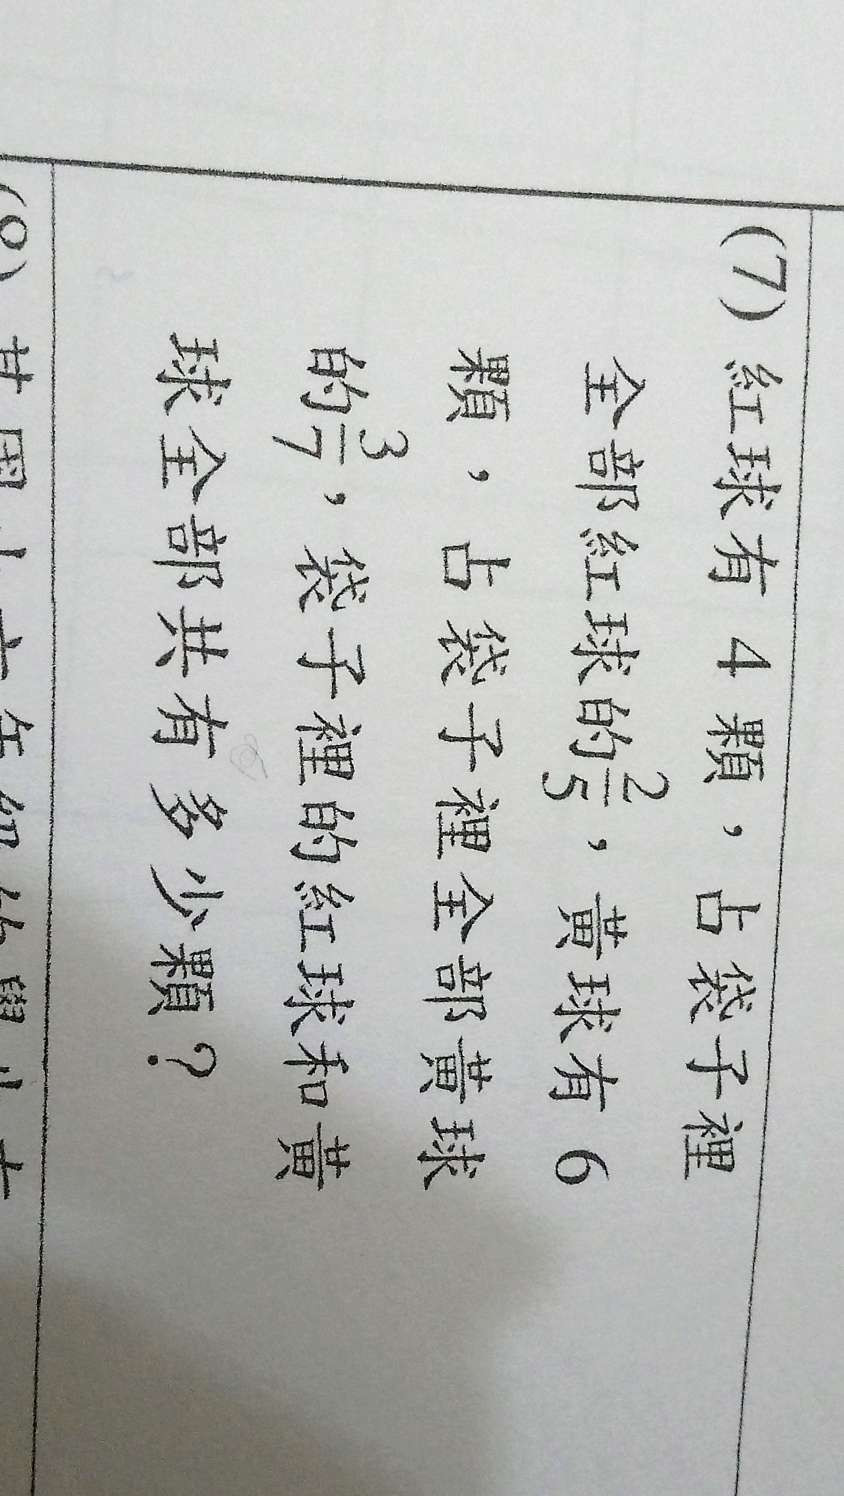 (7) 紅球有 4 顆，占袋子裡
全部紅球的2/5，黃球有 6
顆，占袋子裡全部黃球
的3/7，袋子裡的紅球和黃
球全部共有多少顆？